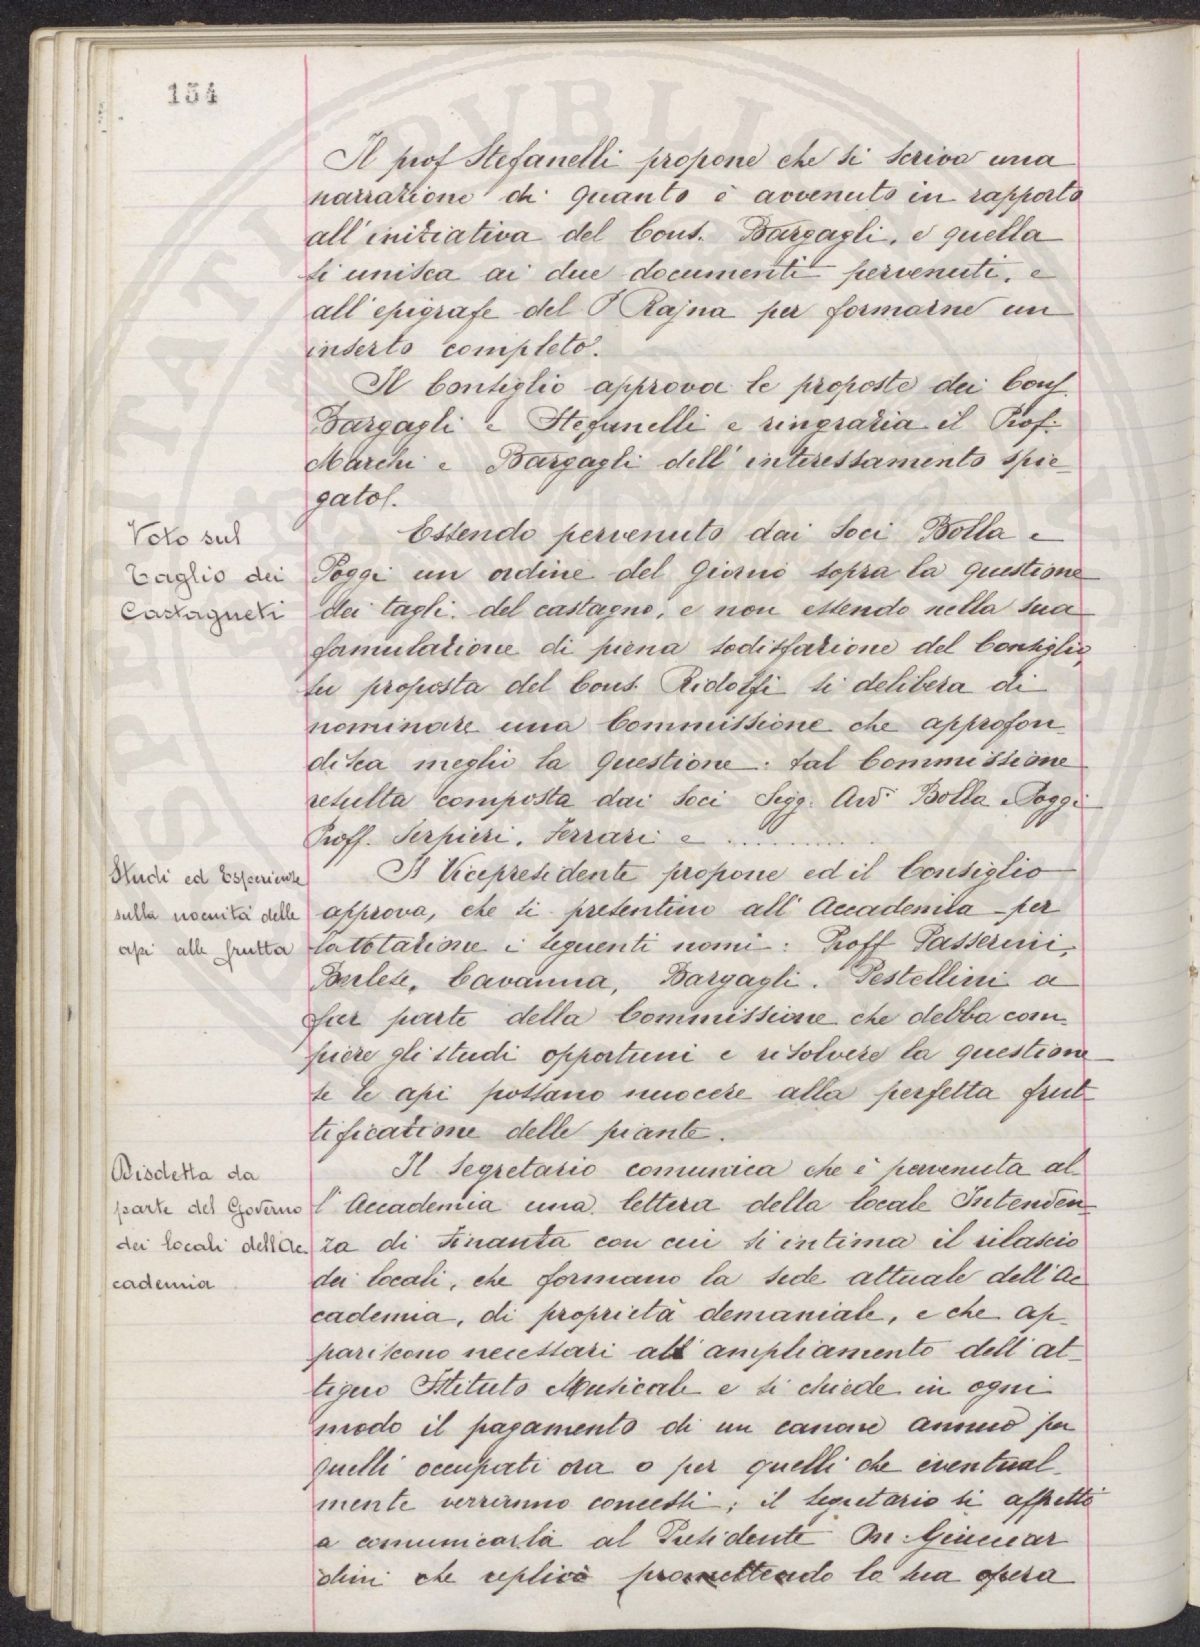 154
Il prof Stefanelli propone che si scriva una
narrazione di quanto è avvenuto in rapporto
all'iniziativa del Cons. Bargagli, e quella
si unisca ai due documenti pervenuti, e
all'epigrafe del P Rajna per formarne un
inserto completo.
Il Consiglio approva le proposte dei Cons.
Bargagli e Stefanelli e ringrazia il Prof.
Marchi e Bargagli dell'interessamento spie-
gato.
Voto sul
Taglio dei
Castagneti
Essendo pervenuto dai Soci Bolla e
Poggi un ordine del Giorno sopra la questione
dei tagli del castagno, e non essendo nella sua
fomulazione di piena sodisfazione del Consiglio,
su proposta del Cons. Ridolfi si delibera di
nominare una Commissione che approfon-
disca meglio la questione: tal Commissione
resulta composta dai Soci Sigg. Avv. Bolla e Poggi
Proff. Serpieri, Ferrari e ............
Studi ed Esperienze
sulla nocuità delle
api alle frutta
Il Vicepresidente propone ed il Consiglio
approva, che si presentino all'Accademia per
la votazione i seguenti nomi: Proff Passerini,
Berlese, Cavanna, Bargagli, Pestellini a
far parte della Commissione che debba com-
piere gli studi opportuni e risolvere la questione
se le api possano nuocere alla perfetta frut-
tificazione delle piante.
Disdetta da
parte del Governo
dei locali dell'Ac-
cademia
Il Segretario comunica che è pervenuta al-
l'Accademia una lettera della locale Intenden-
za di Finanza con cui si intima il rilascio
dei locali, che formano la sede attuale dell'Ac
cademia, di proprietà demaniale, e che ap-
pariscono necessari all'ampliamento dell'at-
tiguo Istituto Musicale e si chiede in ogni
modo il pagamento di un canone annuo per
quelli occupati ora o per quelli che eventual-
mente verranno concessi; il Segretario si affrettò
a comunicarla al Presidente On. Guicciar
dini che replicò promettendo la sua opera